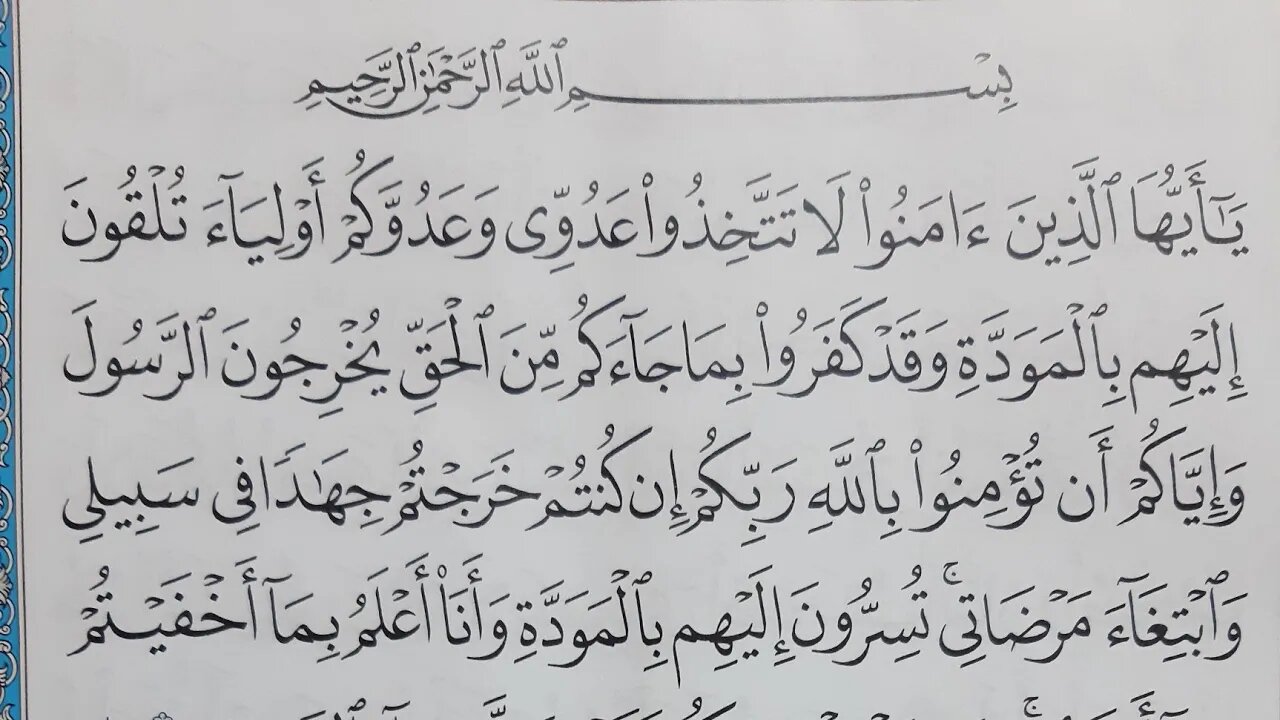 بِسْمِ ٱللَّهِ ٱلرَّحْمَٰنِ ٱلرَّحِيمِ
يَٰٓأَيُّهَا ٱلَّذِينَ ءَامَنُوا۟ لَا تَتَّخِذُوا۟ عَدُوِّى وَعَدُوَّكُمْ أَوْلِيَآءَ تُلْقُونَ
إِلَيْهِم بِٱلْمَوَدَّةِ وَقَدْ كَفَرُوا۟ بِمَا جَآءَكُم مِّنَ ٱلْحَقِّ يُخْرِجُونَ ٱلرَّسُولَ
وَإِيَّاكُمْ أَن تُؤْمِنُوا۟ بِٱللَّهِ رَبِّكُمْ إِن كُنتُمْ خَرَجْتُمْ جِهَٰدًا فِى سَبِيلِى
وَٱبْتِغَآءَ مَرْضَاتِى ۚ تُسِرُّونَ إِلَيْهِم بِٱلْمَوَدَّةِ وَأَنَا۠ أَعْلَمُ بِمَآ أَخْفَيْتُمْ